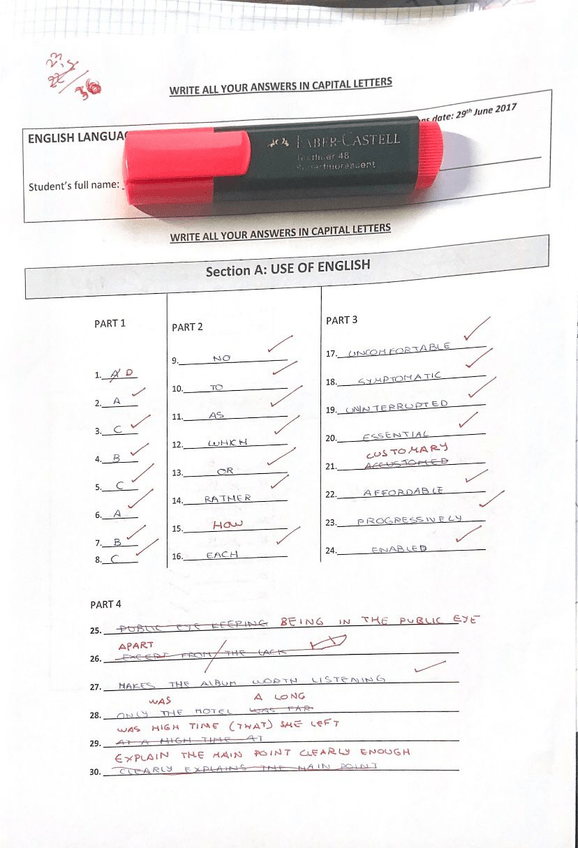 23.5
/36
WRITE ALL YOUR ANSWERS IN CAPITAL LETTERS
ns date: 29th June 2017
ENGLISH LANGUA
FABER-CASTELL
Textliner 48
Superfluorescent
Student's full name:
WRITE ALL YOUR ANSWERS IN CAPITAL LETTERS
Section A: USE OF ENGLISH
PART 1
1. A D
2. A
3. C
4. B
5. C
6. A
7. B
8. C
PART 2
9. NO
10. TO
11. AS
12. WHICH
13. OR
14. RATHER
15. HOW
16. EACH
PART 3
17. UNCOMFORTABLE
18. SYMPTOMATIC
19. UNINTERRUPTED
20. ESSENTIAL
CUSTOMARY
21. ACCUSTOMED
22. AFFORDABLE
23. PROGRESSIVELY
24. ENABLED
PART 4
25. PUBLIC EYE KEEPING BEING IN THE PUBLIC EYE
APART
26. EXCEPT FROM / THE LACK
27. MAKES THE ALBUM WORTH LISTENING
WAS A LONG
28. ONLY THE HOTEL WAS FAR
WAS HIGH TIME (THAT) SHE LEFT
29. AT A HIGH TIME AT
EXPLAIN THE MAIN POINT CLEARLY ENOUGH
30. CLEARLY EXPLAINS THE MAIN POINT